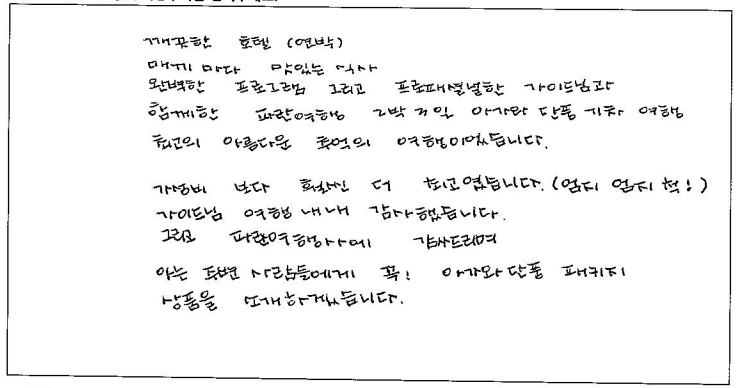 깨끗한 호텔 (연박)
매끼 마다 맛있는 식사
완벽한 프로그램 그리고 프로패셔널한 가이드님과
함께한 파란여행 2박 3일 아가와 단풍 기차 여행
최고의 아름다운 추억의 여행이었습니다.
가성비 보다 훨씬 더 최고였습니다. (엄지 엄지 척!)
가이드님 여행 내내 감사했습니다.
그리고 파란여행사에 감사드리며
아는 주변 사람들에게 꼭! 아가와 단풍 패키지
상품을 소개하겠습니다.